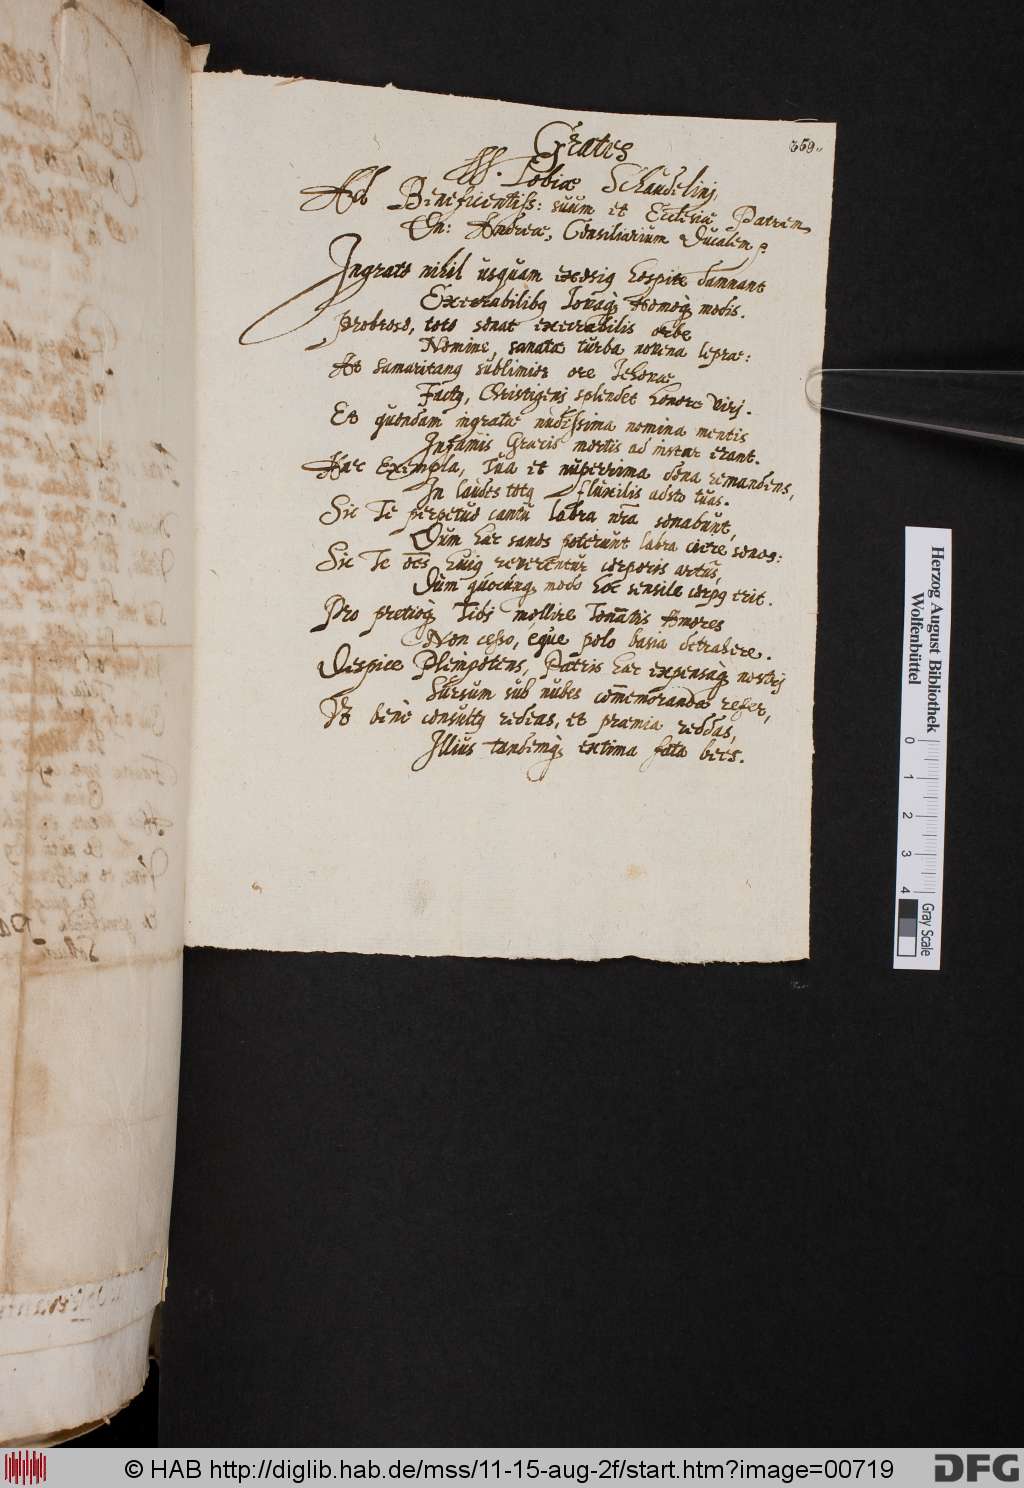 359.
Grates
M. Tobiae Schaudelinj,
Ad Beneficentiss: suum et Ecclesiae Patrem,
Dn: Andreae, Consiliarium Ducalem
Ingrato nihil usquam exosiq hospite damnant
Execrabilibq Iovaq Homoq modis.
Probroso, toto sonat execrabilis orbe
Nomine, sanata turba novena leprae:
At samaritanq sublimior ore Iehovae
Factq, Christigenis splendet honore virj.
Et quondam ingratae nudissima nomina mentis
Infamis Graecis mortis ad instar erant.
Haec Exempla, Tua et nuperrima dona remandens,
In laudes totq fluxilis adsto tuas.
Sic Te perpetuo cantu labra nr̃a sonabunt,
Dum haec sanos poterunt labra ciere sonos:
Sic Te oẽs huiq reverentur corporis artus,
Dum quocunq modo hoc sensile corpq erit.
Pro pretioq Tibi mollire Tonantis Amores
Non cesso, eque polo basia detrahere.
Despice Plenipotens, Patris haec expensaq nostrj
Sursum sub nubes comemoranda refer,
Ut bene consultq redeas, et praemia reddas,
Illius tandemq extima fata bees.
Herzog August Bibliothek
Wolfenbüttel
0 1 2 3 4
Gray Scale
© HAB http://diglib.hab.de/mss/11-15-aug-2f/start.htm?image=00719
DFG